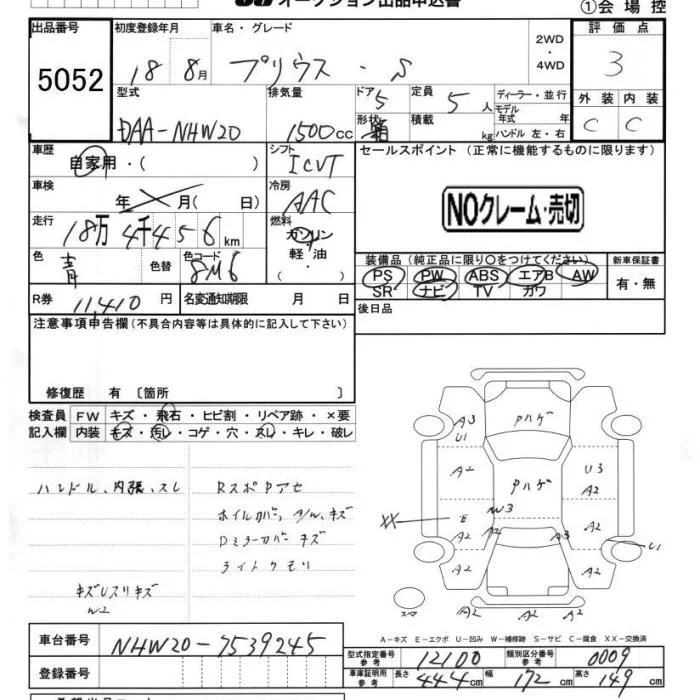 オークション出品申込書
①会場控
出品番号
初度登録年月
車名・グレード
2WD
・
4WD
評価点
5052
18 8月
プリウス ・ S
3
型式
排気量
ドア
5
定員
5人
ディーラー・並行
モデル
年式 年
外装
内装
DAA-NHW20
1500cc
形状
積載
kg
ハンドル 左・右
C
C
車歴
自家用・( )
シフト
ICVT
セールスポイント (正常に機能するものに限ります)
車検
年 月( 日)
冷房
AAC
NOクレーム・売切
走行
18万4千456km
燃料
ガソリン
軽・油
( )
色
青
色替
色コード
8M6
装備品 (純正品に限り○をつけてください)
新車保証書
PS PW ABS エアB AW
SR ナビ TV ガワ
有・無
R券
11,410円
名変通知期限 月 日
後日品
注意事項申告欄 (不具合内容等は具体的に記入して下さい)
修復歴 有 〔箇所 〕
検査員
記入欄
FW
キズ・飛石・ヒビ割・リペア跡・×要
内装
キズ・汚レ・コゲ・穴・スレ・キレ・破レ
ハンドル、内張、スレ
RスポPアセ
ホイルカバー、A/W、キズ
Dミラーカバー キズ
ライトクモリ
キズUスリキズ
W2
A3
U1
Pハゲ
A2
U3
A2
Pハゲ
XX
E
W3
A2
A2
A3
A2
A2
A2
U1
A2
スペア
A2
A2
A2
A-キズ E-エクボ U-凹み W-補修跡 S-サビ C-腐食 XX-交換済
車台番号
NHW20-7539245
型式指定番号
参考
12100
類別区分番号
参考
0009
登録番号
車庫証明用
参考
長さ
444cm
幅
172cm
高さ
149cm